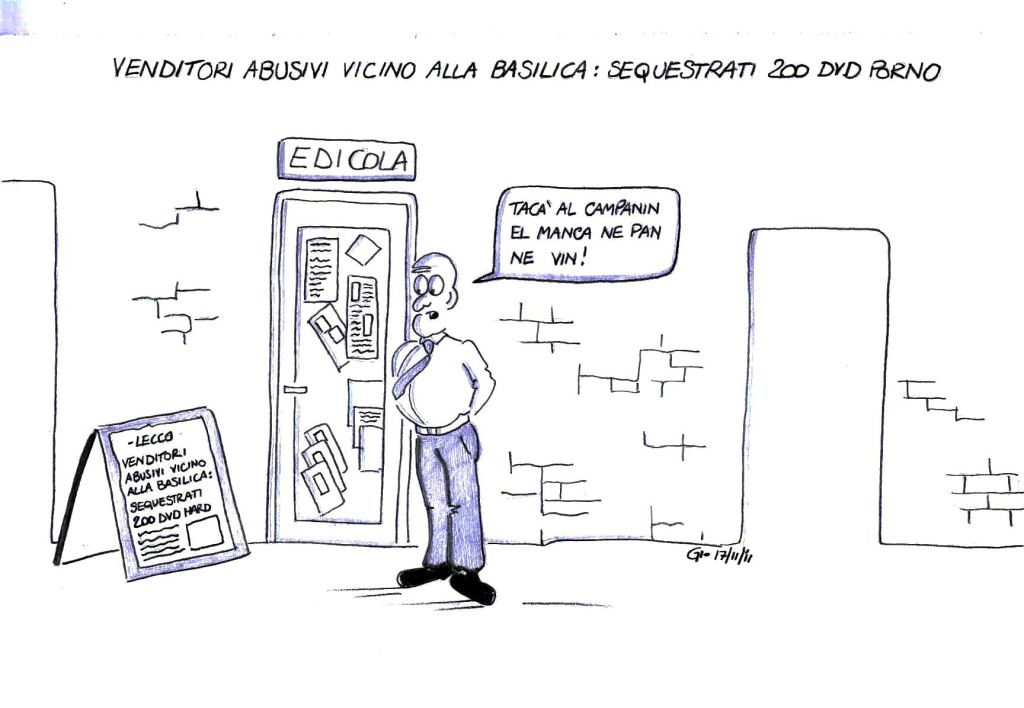 VENDITORI ABUSIVI VICINO ALLA BASILICA: SEQUESTRATI 200 DVD PORNO
EDICOLA
TACA' AL CAMPANIN
EL MANCA NE PAN
NE VIN!
-LECCO-
VENDITORI
ABUSIVI VICINO
ALLA BASILICA:
SEQUESTRATI
200 DVD HARD
Gio 17/11/11